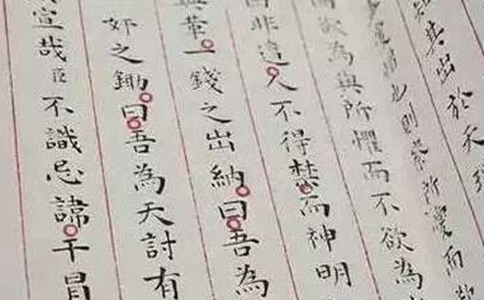 其出於天
也則所而欲
欲為與所懼而不欲為
非遠人不得而神明
一錢之出納曰吾為
奸之鋤曰吾為天討有
宣哉臣不識忌諱干冒